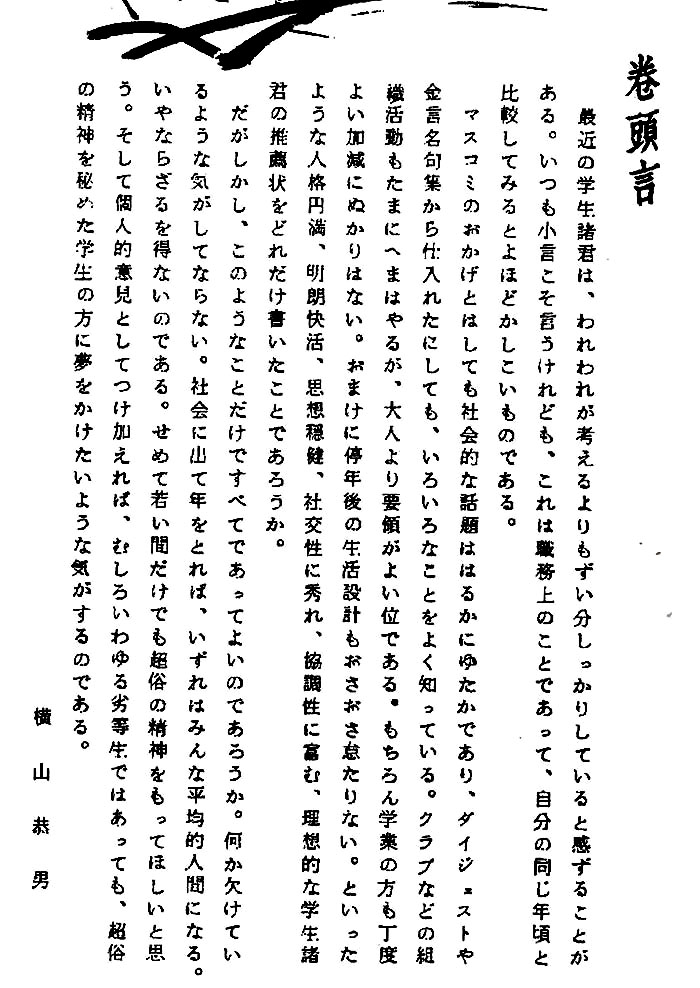 巻頭言
最近の学生諸君は、われわれが考えるよりもずい分しっかりしていると感ずることが
ある。いつも小言こそ言うけれども、これは職務上のことであって、自分の同じ年頃と
比較してみるとよほどかしこいものである。
マスコミのおかげとはしても社会的な話題ははるかにゆたかであり、ダイジェストや
金言名句集から仕入れたにしても、いろいろなことをよく知っている。クラブなどの組
織活動もたまにへまはやるが、大人より要領がよい位である。もちろん学業の方も丁度
よい加減にぬかりはない。おまけに停年後の生活設計もおさおさ怠たりない。といった
ような人格円満、明朗快活、思想穏健、社交性に秀れ、協調性に富む、理想的な学生諸
君の推薦状をどれだけ書いたことであろうか。
だがしかし、このようなことだけですべてであってよいのであろうか。何か欠けてい
るような気がしてならない。社会に出て年をとれば、いずれはみんな平均的人間になる。
いやならざるを得ないのである。せめて若い間だけでも超俗の精神をもってほしいと思
う。そして個人的意見としてつけ加えれば、むしろいわゆる劣等生ではあっても、超俗
の精神を秘めた学生の方に夢をかけたいような気がするのである。
横山恭男